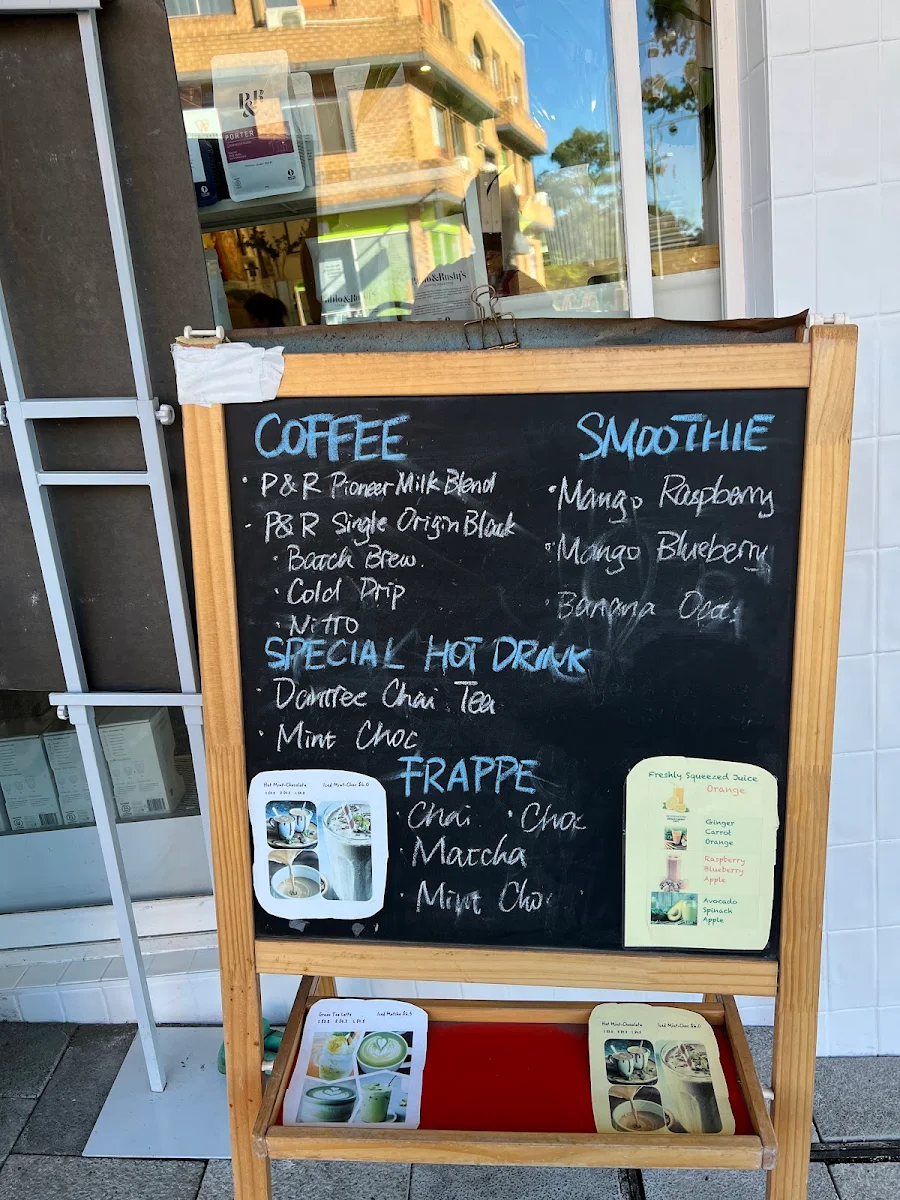 P&R
PORTER
COFFEE
• P&R Pioneer Milk Blend
• P&R Single Origin Black
• Batch Brew.
• Cold Drip
• Nitro
SPECIAL HOT DRINK
• Daintree Chai Tea
• Mint Choc
FRAPPE
• Chai • Choc
• Matcha
• Mint Choc
SMOOTHIE
• Mango Raspberry
• Mango Blueberry
• Banana Oats
Hot Mint-Chocolate Iced Mint-Choc $6.0
Freshly Squeezed Juice
Orange
Ginger
Carrot
Orange
Raspberry
Blueberry
Apple
Avocado
Spinach
Apple
Green Tea Latte Iced Matcha $6.5
Hot Mint-Chocolate Iced Mint-Choc $6.0